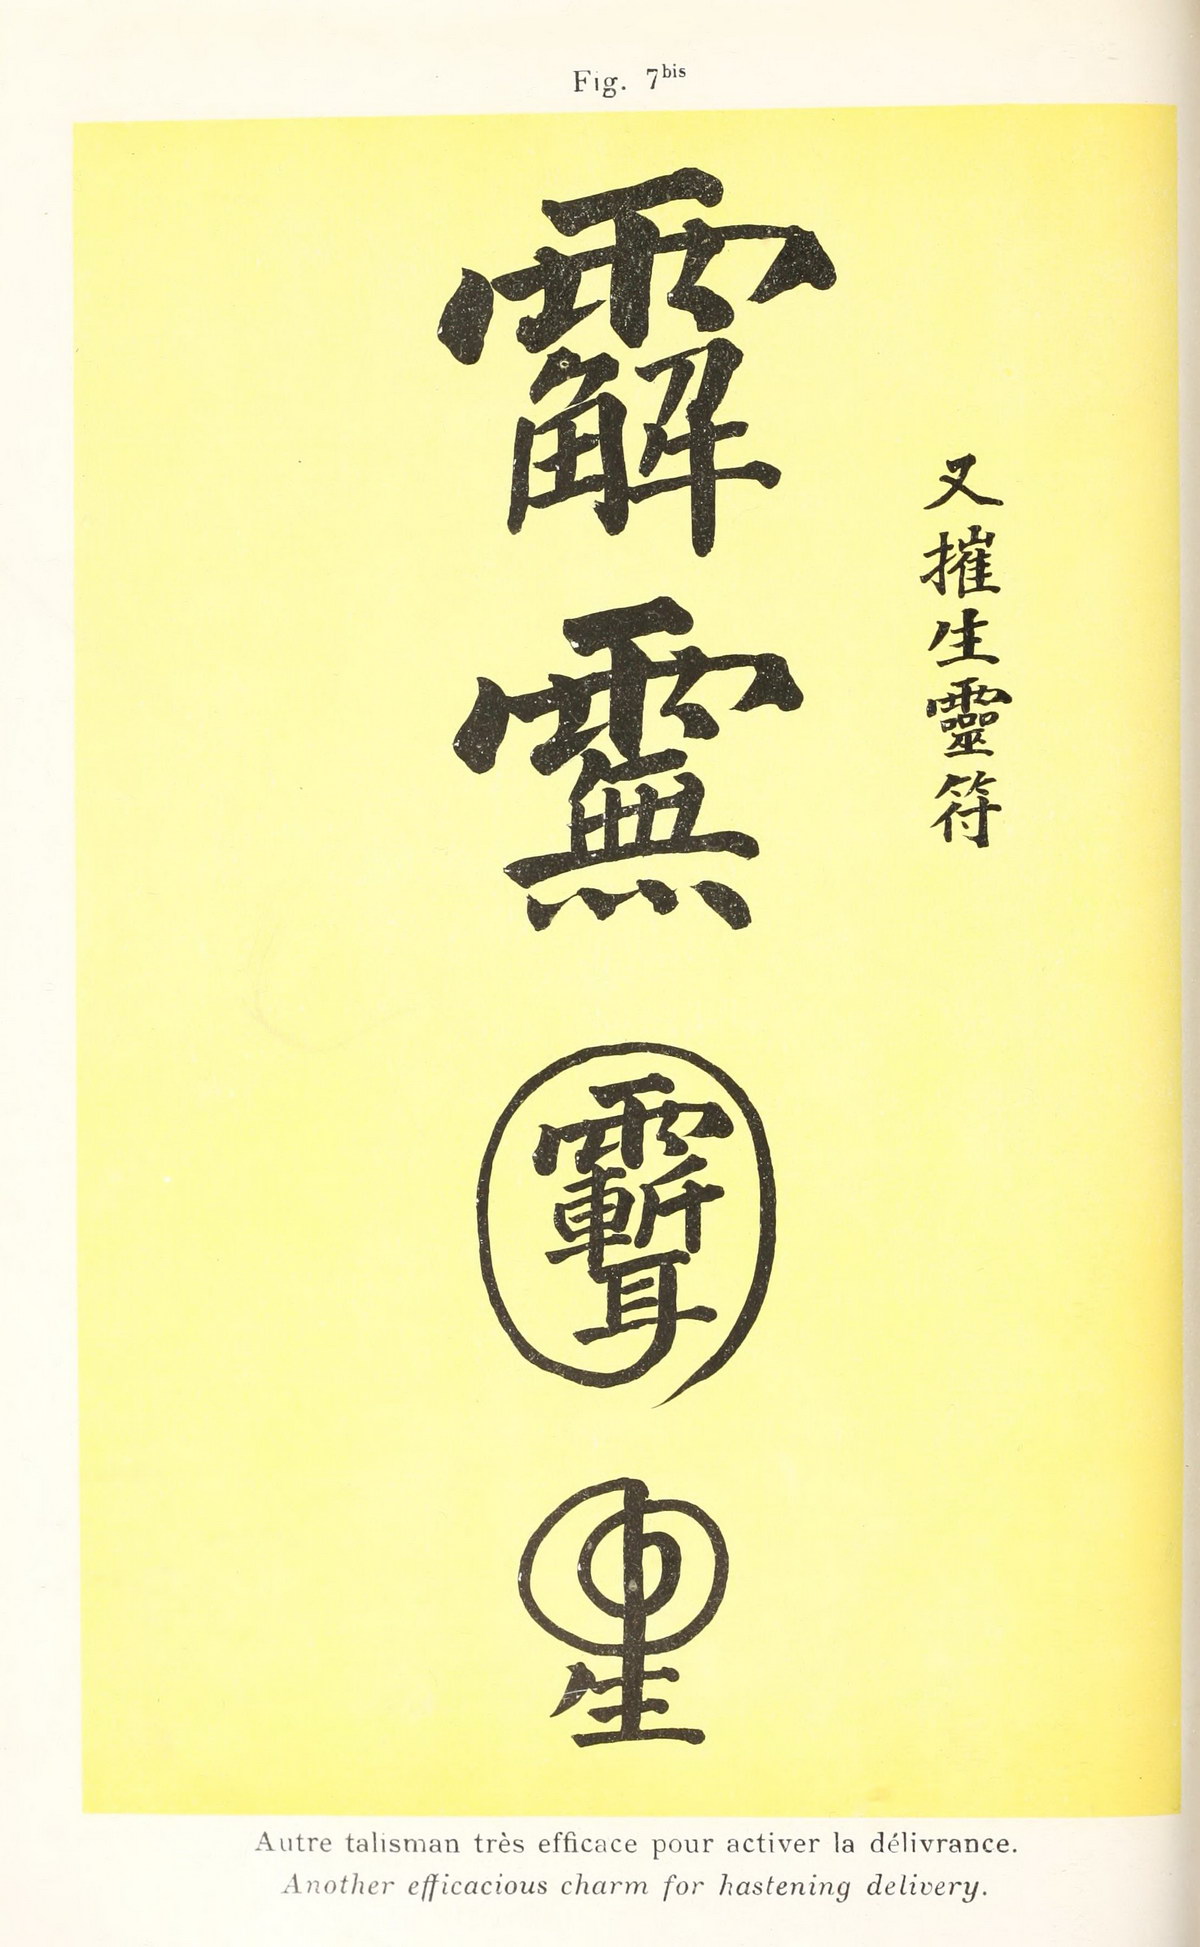 Fig. 7bis
又摧生靈符
生
Autre talisman très efficace pour activer la délivrance.
Another efficacious charm for hastening delivery.